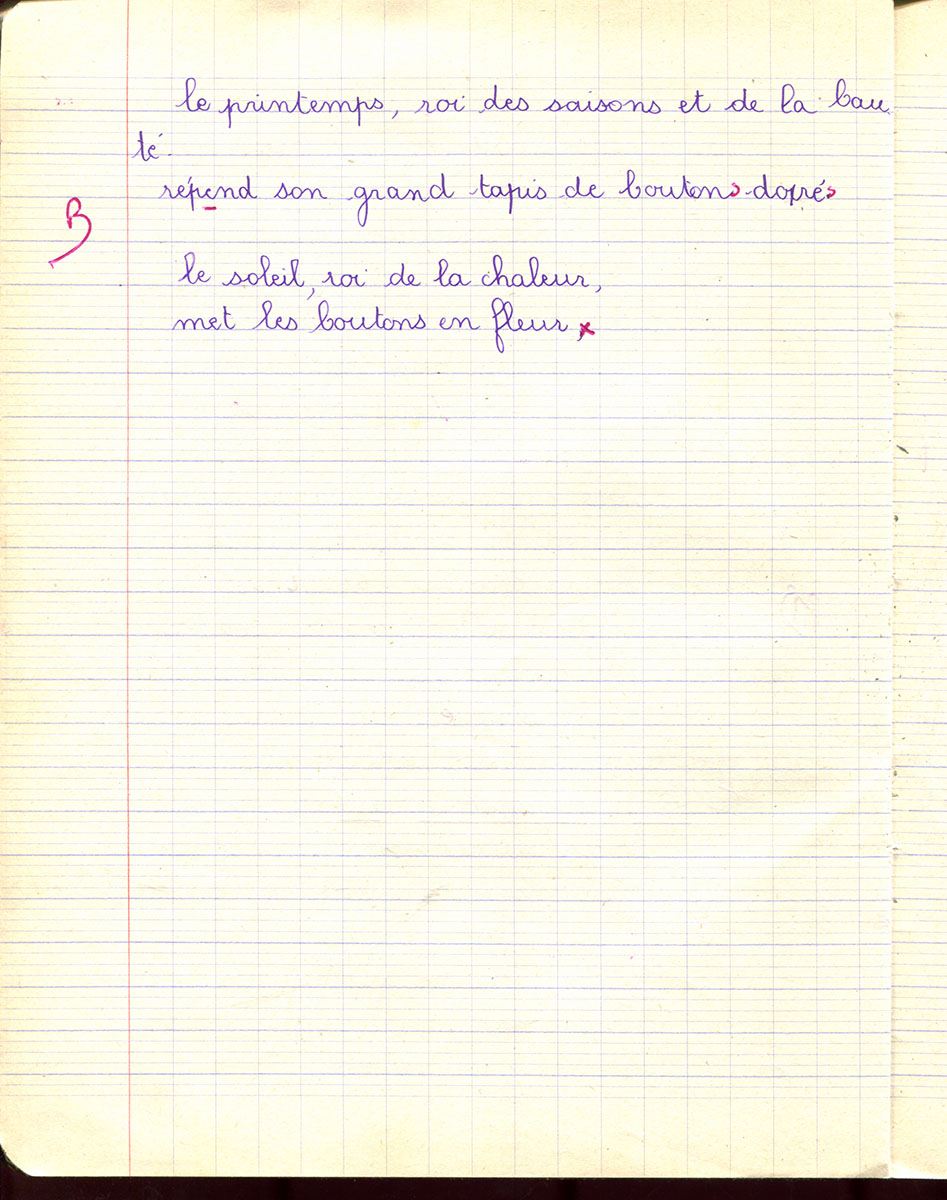 le printemps, roi des saisons et de la bau
té.
répend son grand tapis de boutons dorés
B
le soleil, roi de la chaleur,
met les boutons en fleur,x